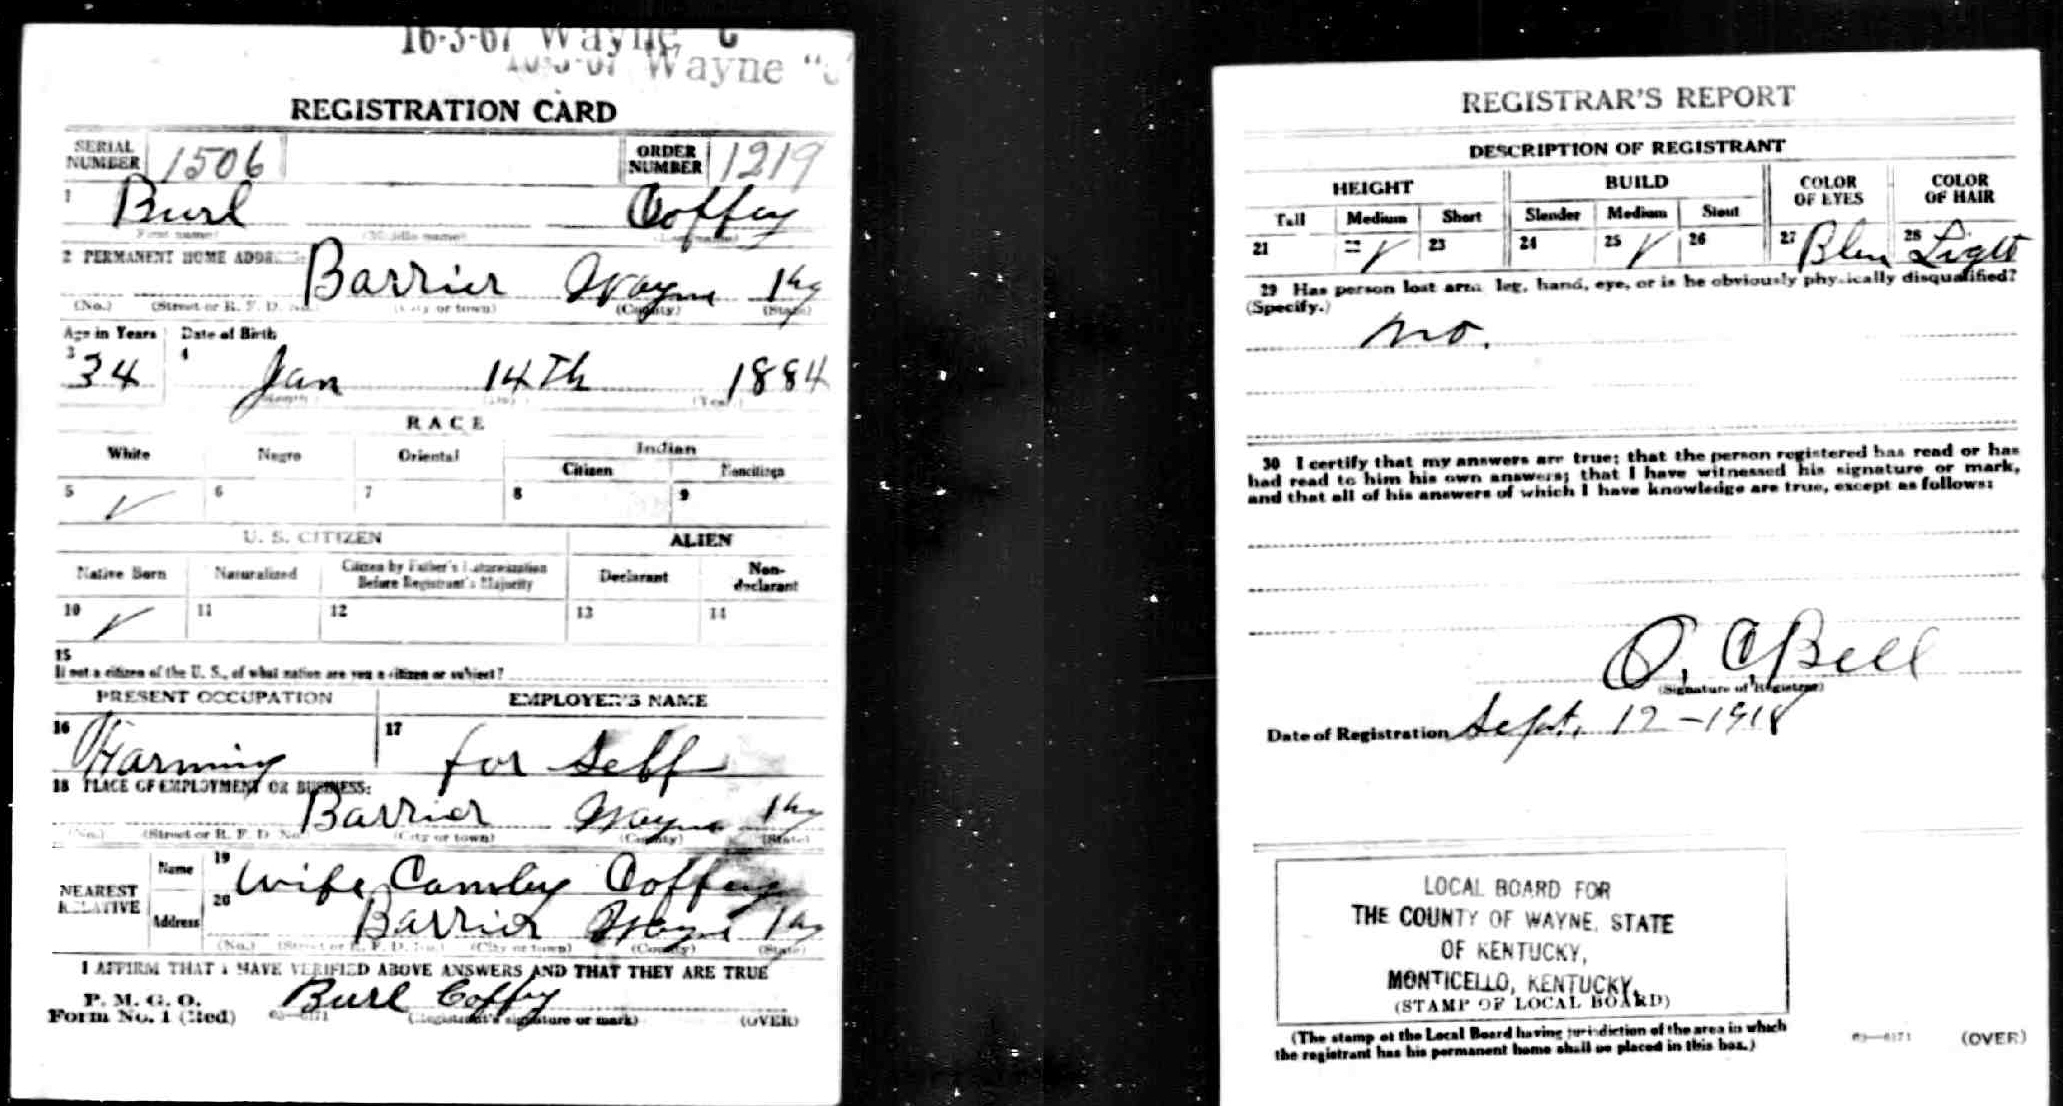 16-3-67 Wayne C
16-3-67 Wayne "C
REGISTRATION CARD
SERIAL NUMBER 1506 ORDER NUMBER 1219
1 Burl Coffey
(First name) (Middle name) (Last name)
2 PERMANENT HOME ADDRESS: Barrier Wayne Ky
(No.) (Street or R. F. D. No.) (City or town) (County) (State)
Age in Years Date of Birth
3 34 4 Jan 14Th 1884
(Month) (Day) (Year)
RACE
White Negro Oriental Indian
Citizen Noncitizen
5 ✓ 6 7 8 9
U. S. CITIZEN ALIEN
Native Born Naturalized Citizen by Father's Naturalization Before Registrant's Majority Declarant Non-declarant
10 ✓ 11 12 13 14
15
If not a citizen of the U. S., of what nation are you a citizen or subject?
PRESENT OCCUPATION EMPLOYER'S NAME
16 Farming 17 for Self
18 PLACE OF EMPLOYMENT OR BUSINESS:
Barrier Wayne Ky
(No.) (Street or R. F. D. No.) (City or town) (County) (State)
NEAREST RELATIVE Name 19 Wife, Coffey
Address 20 Barrier Wayne Ky
(No.) (Street or R. F. D. No.) (City or town) (County) (State)
I AFFIRM THAT I HAVE VERIFIED ABOVE ANSWERS AND THAT THEY ARE TRUE
P. M. G. O.
Form No. 1 (Red) 03—6171 Burl Coffy
(Registrant's signature or mark) (OVER)
REGISTRAR'S REPORT
DESCRIPTION OF REGISTRANT
HEIGHT BUILD COLOR OF EYES COLOR OF HAIR
Tall Medium Short Slender Medium Stout
21 22 ✓ 23 24 25 ✓ 26 27 Blue 28 Light
29 Has person lost arm, leg, hand, eye, or is he obviously physically disqualified?
(Specify.)
no.
30 I certify that my answers are true; that the person registered has read or has
had read to him his own answers; that I have witnessed his signature or mark,
and that all of his answers of which I have knowledge are true, except as follows:
O. C. Bell
(Signature of Registrar)
Date of Registration Sept. 12 - 1918
LOCAL BOARD FOR
THE COUNTY OF WAYNE, STATE
OF KENTUCKY,
MONTICELLO, KENTUCKY.
(STAMP OF LOCAL BOARD)
(The stamp of the Local Board having jurisdiction of the area in which
the registrant has his permanent home shall be placed in this box.)
03—6171 (OVER)